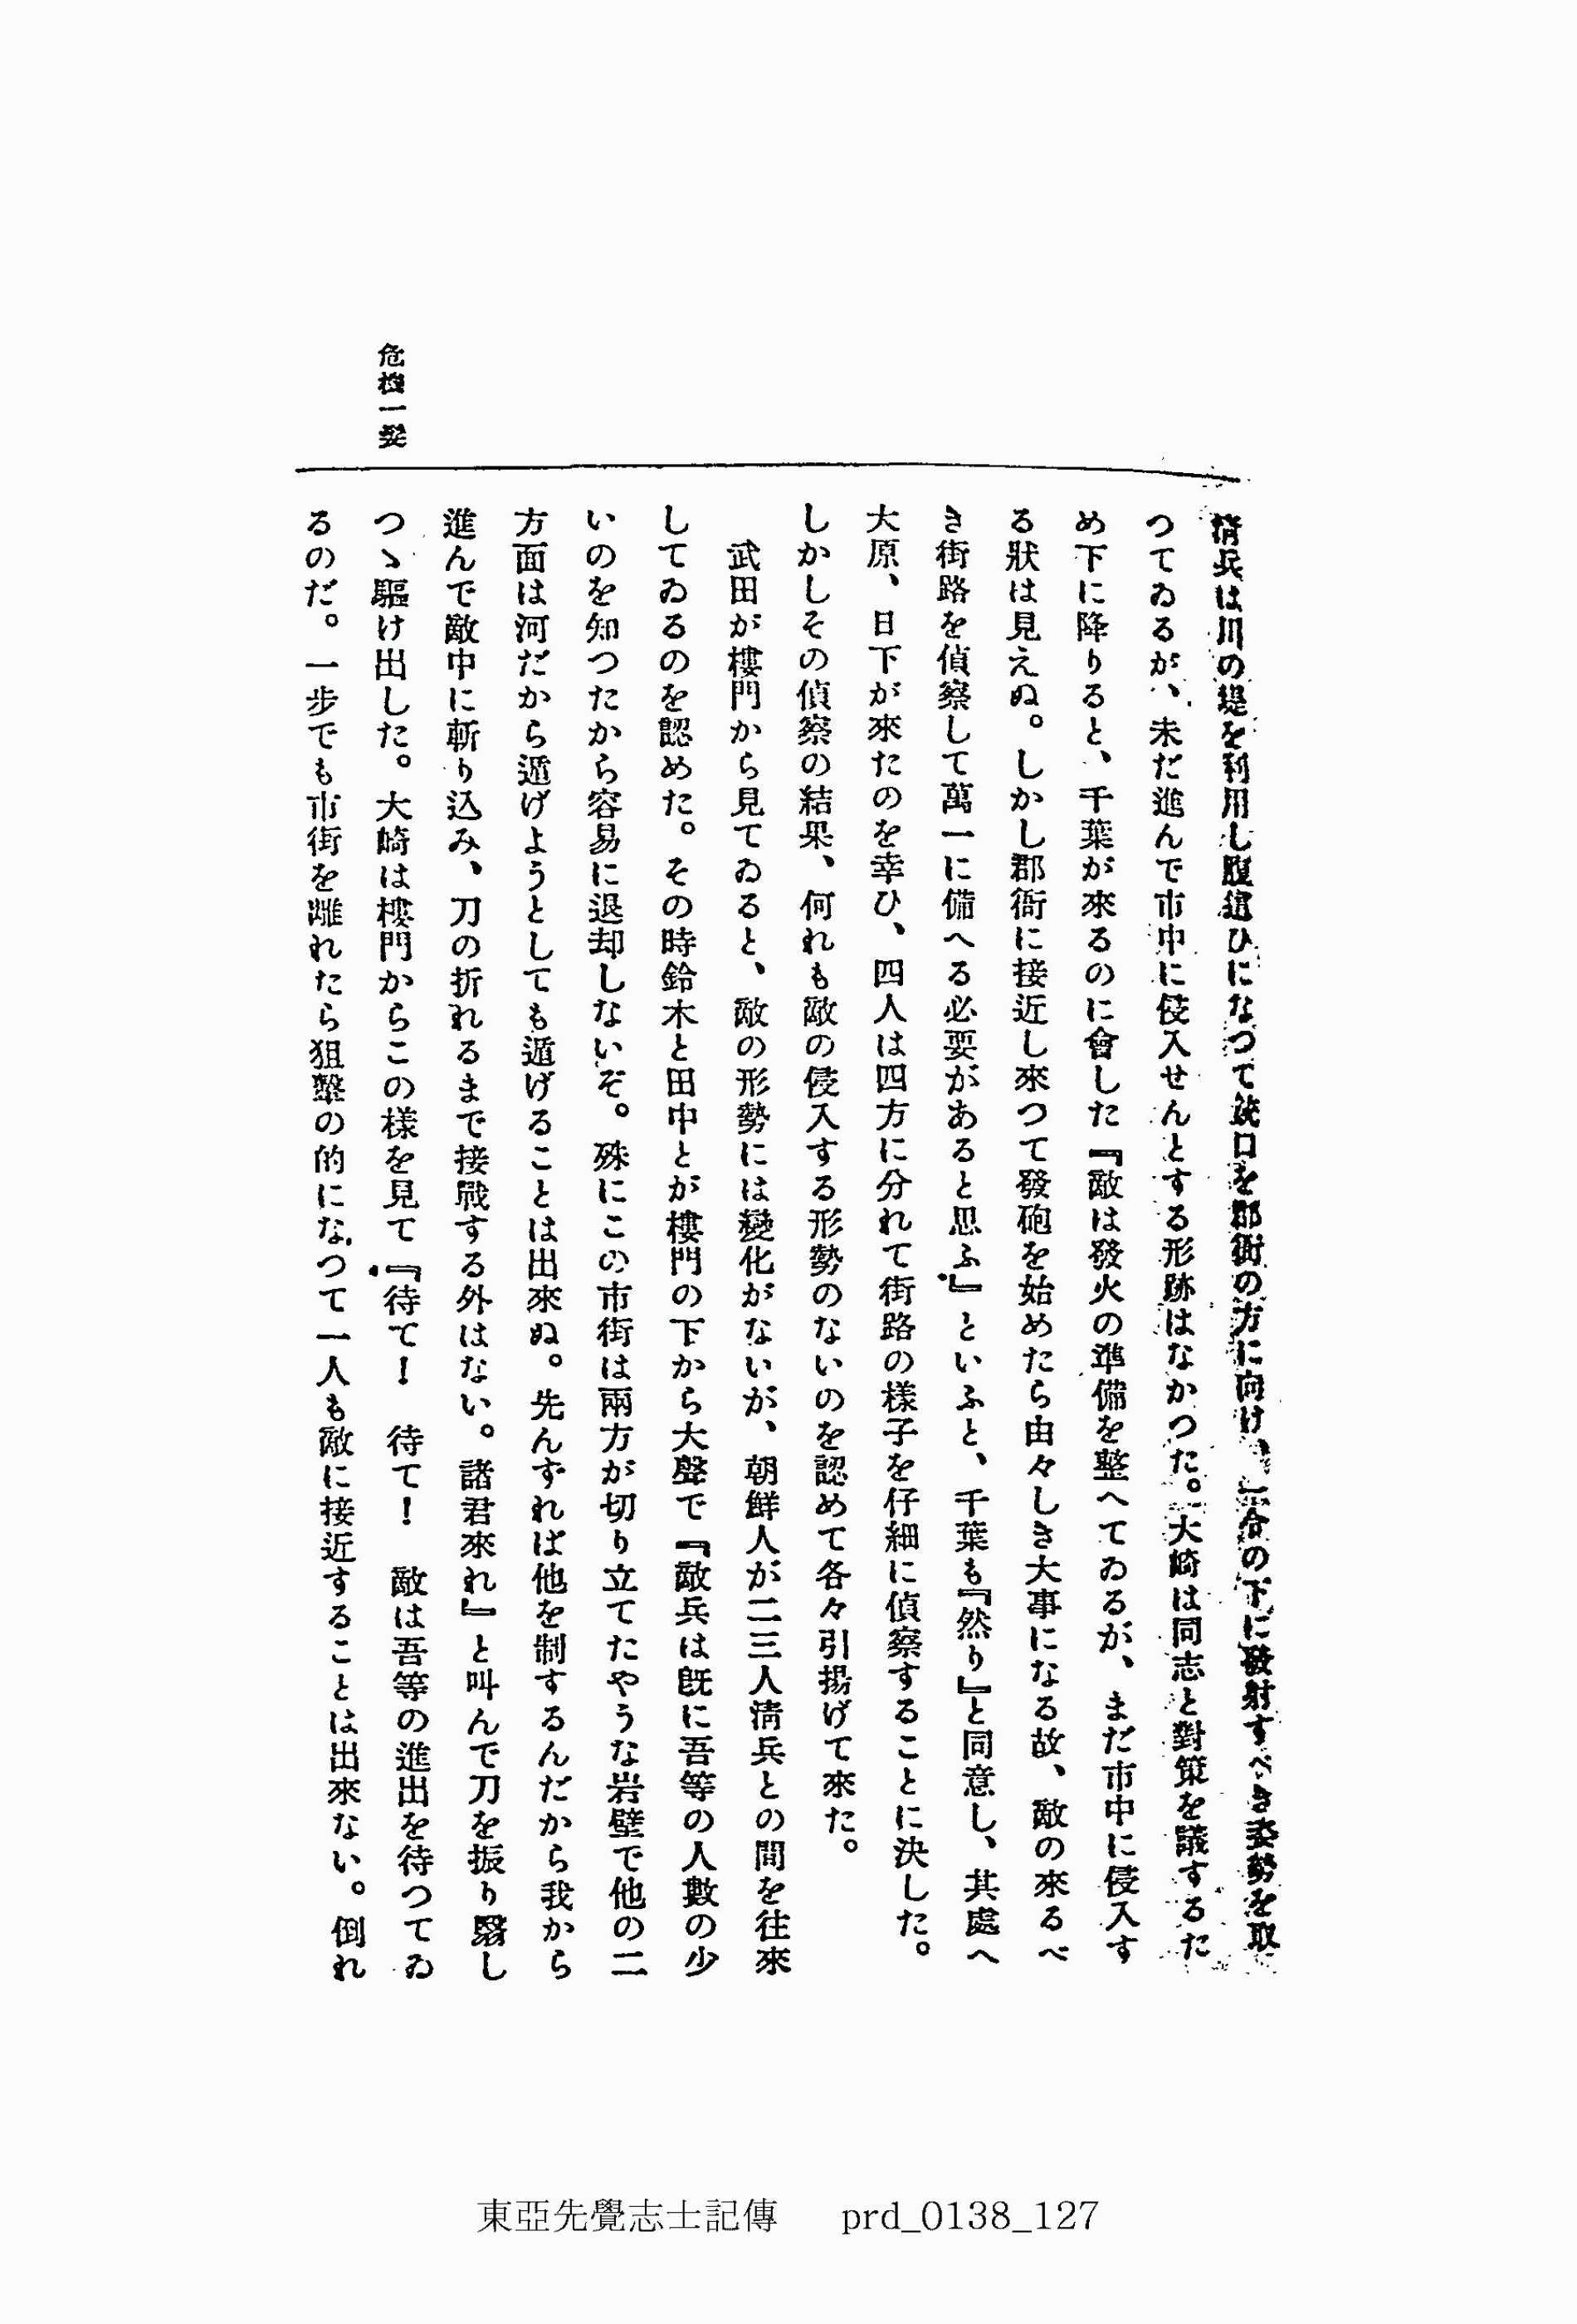 清兵は川の堤を利用し腹這ひになつて銃口を郡衙の方に向け、一令の下に發射すべき姿勢を取
つてゐるが、未だ進んで市中に侵入せんとする形跡はなかつた。大崎は同志と對策を議するた
め下に降りると、千葉が來るのに會した『敵は發火の準備を整へてゐるが、まだ市中に侵入す
る狀は見えぬ。しかし郡衙に接近し來つて發砲を始めたら由々しき大事になる故、敵の來るべ
き街路を偵察して萬一に備へる必要があると思ふ』といふと、千葉も『然り』と同意し、其處へ
大原、日下が來たのを幸ひ、四人は四方に分れて街路の樣子を仔細に偵察することに決した。
しかしその偵察の結果、何れも敵の侵入する形勢のないのを認めて各々引揚げて來た。
武田が樓門から見てゐると、敵の形勢には變化がないが、朝鮮人が二三人淸兵との間を往來
してゐるのを認めた。その時鈴木と田中とが樓門の下から大聲で『敵兵は旣に吾等の人數の少
いのを知つたから容易に退却しないぞ。殊にこの市街は兩方が切り立てたやうな岩壁で他の二
方面は河だから遁げようとしても遁げることは出來ぬ。先んずれば他を制するんだから我から
進んで敵中に斬り込み、刀の折れるまで接戰する外はない。諸君來れ』と叫んで刀を振り翳し
危機一髮
つゝ驅け出した。大崎は樓門からこの樣を見て『待て！　待て！　敵は吾等の進出を待つてゐ
るのだ。一步でも市街を離れたら狙擊の的になつて一人も敵に接近することは出來ない。倒れ
東亞先覺志士記傳 prd_0138_127